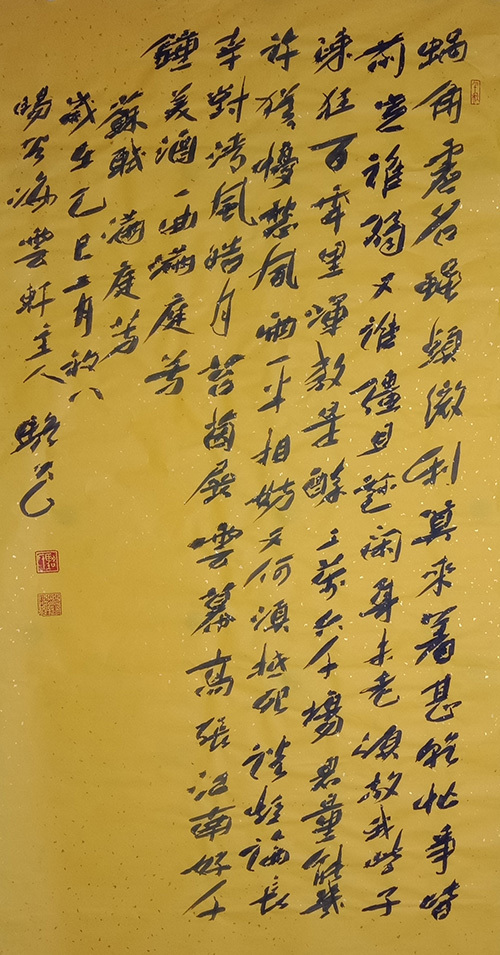 蝸角虛名蠅頭微利算來著甚乾忙事皆
前定誰弱又誰彊且趁閑身未老須放我些子
疎狂百年里渾教是醉三萬六千場思量能幾
許憂愁風雨一半相妨又何須抵死談短論長
幸對清風皓月苔茵展雲幕高張江南好千
鍾美酒一曲滿庭芳
蘇軾 滿庭芳
歲在乙巳 月初八
海雲軒主人